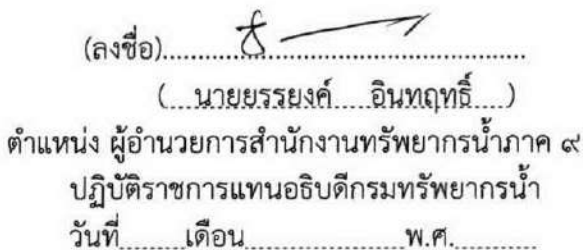 (ลงชื่อ)............................................................
(....นายยรรยงค์....อินทฤทธิ์....)
ตำแหน่ง ผู้อำนวยการสำนักงานทรัพยากรน้ำภาค ๙
ปฏิบัติราชการแทนอธิบดีกรมทรัพยากรน้ำ
วันที่..........เดือน............................พ.ศ...............